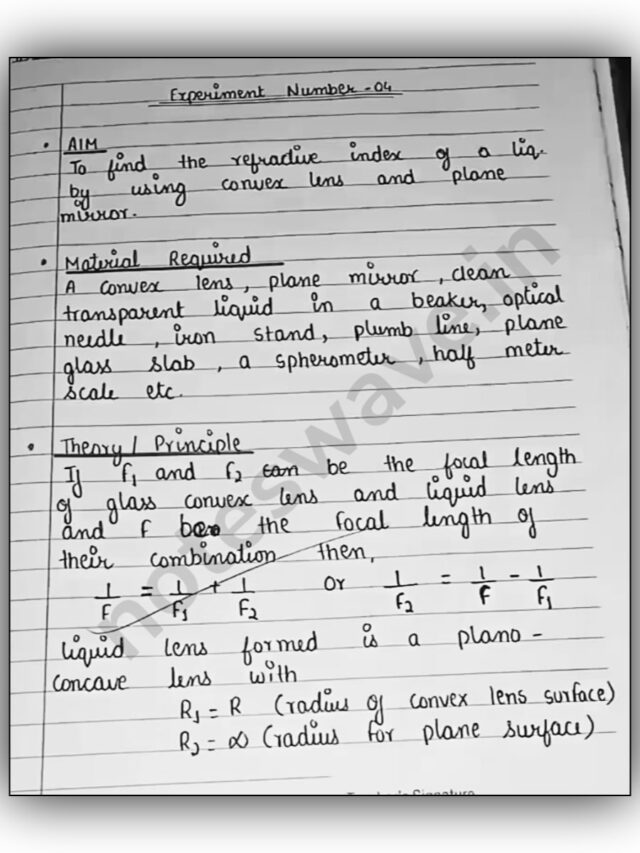 Experiment Number - 04
• AIM
To find the refractive index of a liq.
by using convex lens and plane
mirror.
• Material Required
A convex lens, plane mirror, clean
transparent liquid in a beaker, optical
needle, iron stand, plumb line, plane
glass slab, a spherometer, half meter
scale etc.
• Theory / Principle
If f1 and f2 can be the focal length
of glass convex lens and liquid lens
and F be the focal length of
their combination then,
1/F = 1/F1 + 1/F2 or 1/F2 = 1/F - 1/F1
liquid lens formed is a plano -
concave lens with
R1 = R (radius of convex lens surface)
R2 = ∞ (radius for plane surface)
noteswave.in